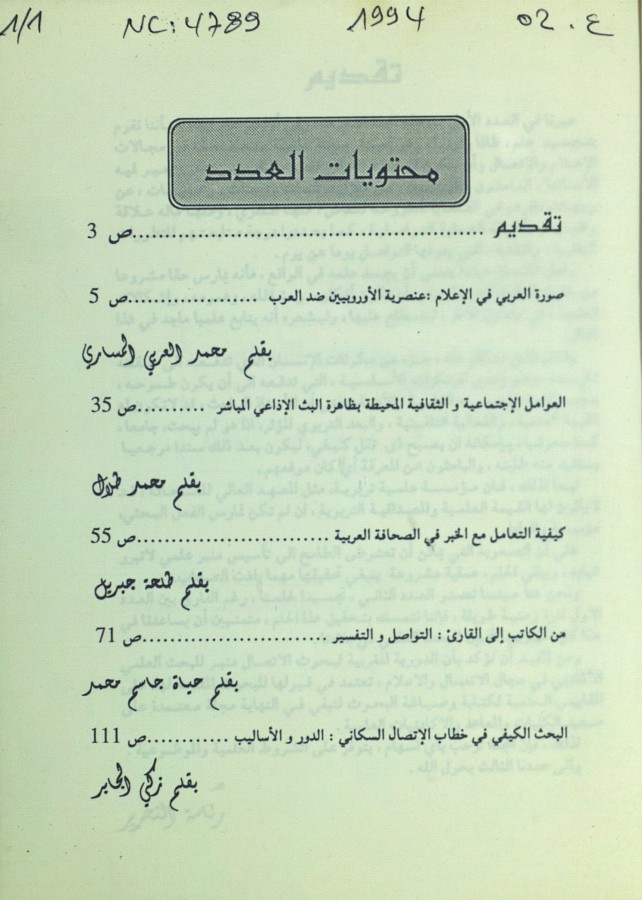 1/1 NC: 4789 1994 02 . ع
محتويات العدد
تقديم ........................................ص 3
صورة العربي في الإعلام :عنصرية الأوروبيين ضد العرب ..................ص 5
بقلم محمد العربي المساري
العوامل الإجتماعية و الثقافية المحيطة بظاهرة البث الإذاعي المباشر ..........ص 35
بقلم محمد طلال
كيفية التعامل مع الخبر في الصحافة العربية ...........................ص 55
بقلم طلحة جبريل
من الكاتب إلى القارئ : التواصل و التفسير ..........................ص 71
بقلم حياة جاسم محمد
البحث الكيفي في خطاب الإتصال السكاني : الدور و الأساليب ............ص 111
بقلم زكي الجابر